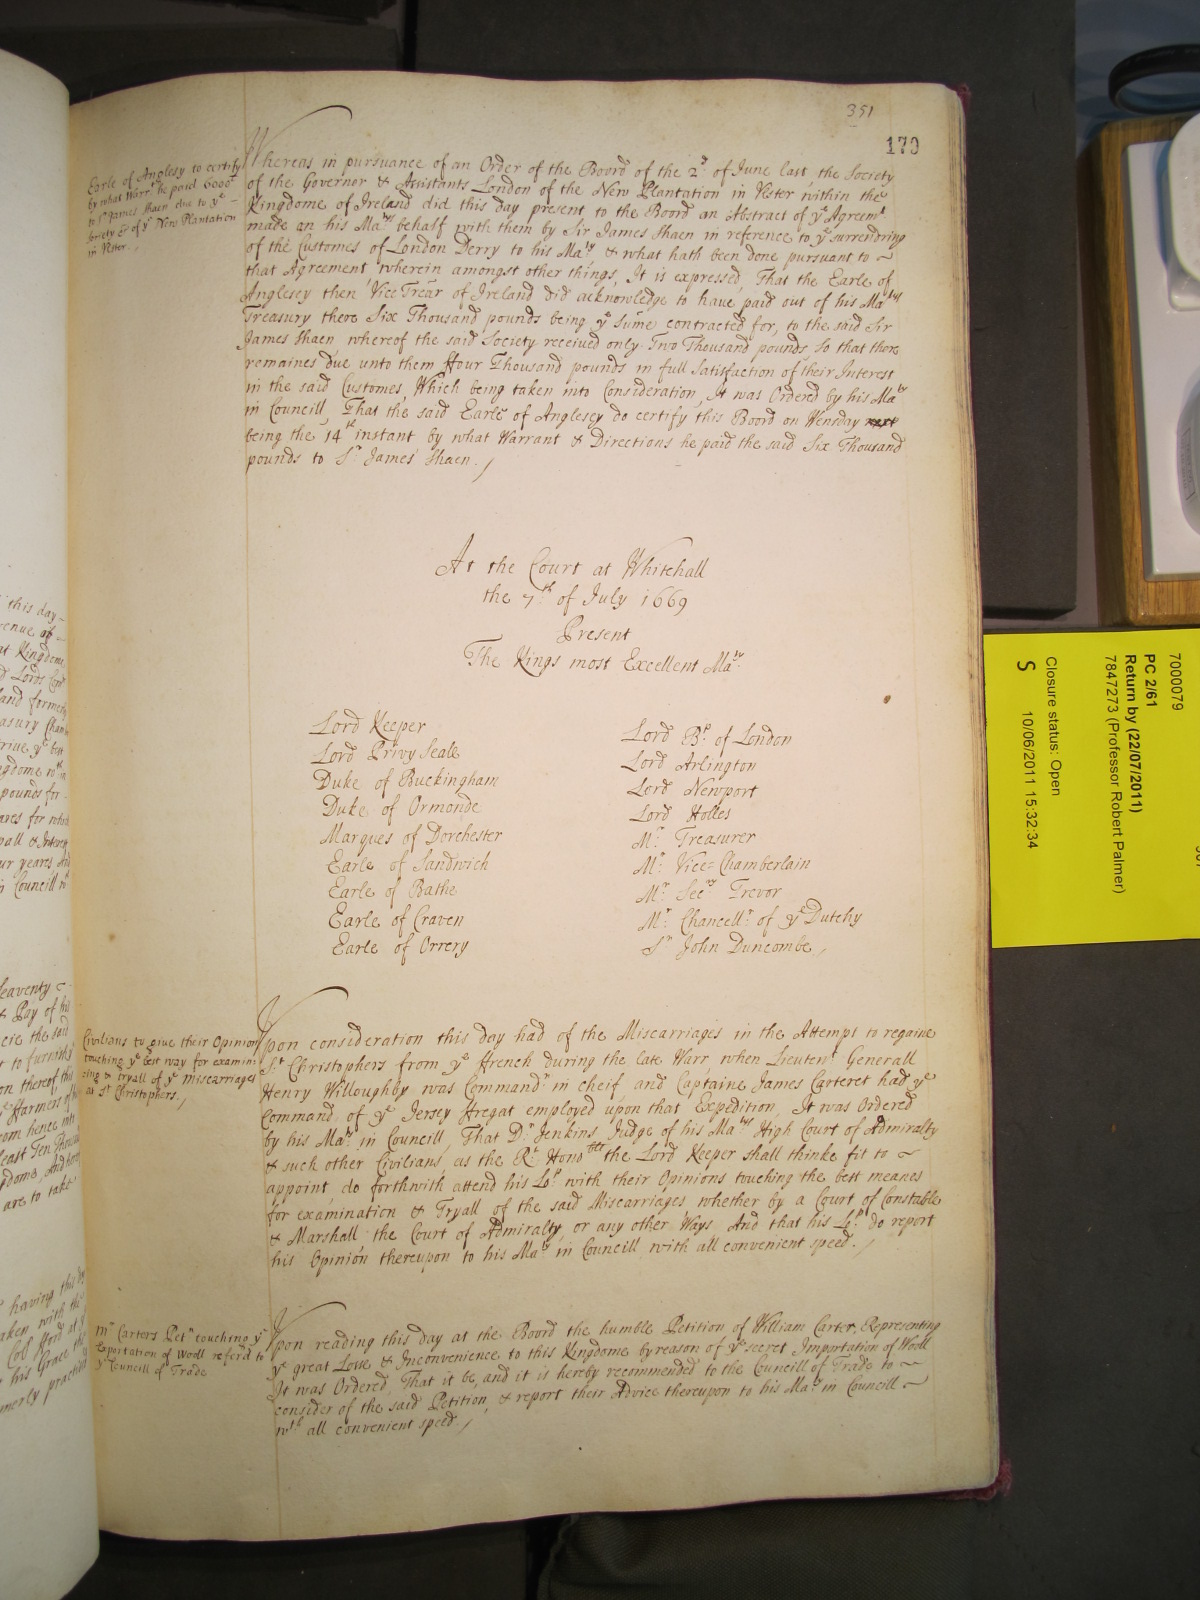 351
170
Earle of Anglesy to certify
by what Warrt he paid 6000l
to Sr James Shaen due to ye
Society &c of ye New Plantation
in Vlster.
Whereas in pursuance of an Order of the Board of the 2d of June last the Society
of the Governor & Assistants London of the New Plantation in Vlster within the
Kingdome of Ireland did this day present to the Board an Abstract of ye Agreemt
made on his Maties behalf with them by Sir James Shaen in reference to ye surrendring
of the Customes of London Derry to his Maty & what hath been done pursuant to ~
that Agreement wherein amongst other things, It is expressed, That the Earle of
Anglesey then Vice Trear of Ireland did acknowledge to have paid out of his Matys
Treasury there Six Thousand pounds being ye Sume contracted for, to the said Sir
James Shaen whereof the said Society received only Two Thousand pounds, So that there
remaines due unto them ffour Thousand pounds in full Satisfaction of their Interest
in the said Customes, Which being taken into Consideration, It was Ordered by his Maty
in Councill, That the said Earle of Anglesey do certify this Board on Wensday next
being the 14th instant by what Warrant & Directions he paid the said Six Thousand
pounds to Sr James Shaen.
At the Court at Whitehall
the 7th of July 1669
Present
The Kings most Excellent Maty
Lord Keeper
Lord Privy Seale
Duke of Buckingham
Duke of Ormonde
Marques of Dorchester
Earle of Sandwich
Earle of Bathe
Earle of Craven
Earle of Orrery
Lord Bp of London
Lord Arlington
Lord Newport
Lord Holles
Mr Treasurer
Mr Vice=Chamberlain
Mr Secry Trevor
Mr Chancellr of ye Dutchy
Sr John Duncombe
Civilians to give their Opinion
touching ye best way for examin
ing & tryall of ye Miscarriages
at St Christophers.
Upon consideration this day had of the Miscarriages in the Attempt to regaine
St Christophers from ye ffrench during the late Warr, when Lieutent Generall
Henry Willoughby was Commandr in cheif and Captaine James Carteret had ye
Command of ye Jersey ffregat employed upon that Expedition, It was Ordered
by his Maty in Councill, That Dr Jenkins, Judge of his Matys High Court of Admiralty
& such other Civilians, as the Rt Honoble the Lord Keeper shall thinke fit to ~
appoint, do forthwith attend his Lop with their Opinions touching the best meanes
for examination & Tryall of the said Miscarriages whether by a Court of Constable
& Marshall the Court of Admiralty or any other Ways And that his Lop do report
his Opinion thereupon to his Maty in Councill with all convenient speed.
Mr Carters Petn touching ye
Exportation of Wooll referd to
ye Councill of Trade
Upon reading this day at the Board the humble Petition of William Carter, Representing
ye great Losse & Inconvenience to this Kingdome by reason of ye secret Importation of Wooll
It was Ordered, That it be, and it is hereby recommended to the Councill of Trade to ~
consider of the said Petition, & report their Advice thereupon to his Maty in Councill ~
wth all convenient speed
this day
enue of
Kingdome
land formerly
pounds for
Councill
seaventy
& Pay of his
to furnish
thereof this
ffarmers of
from hence
least Ten
are to take
having this day
taken with the
his Grace the
7000079
PC 2/61
Return by (22/07/2011)
7847273 (Professor Robert Palmer)
Closure status: Open
S 10/06/2011 15:32:34